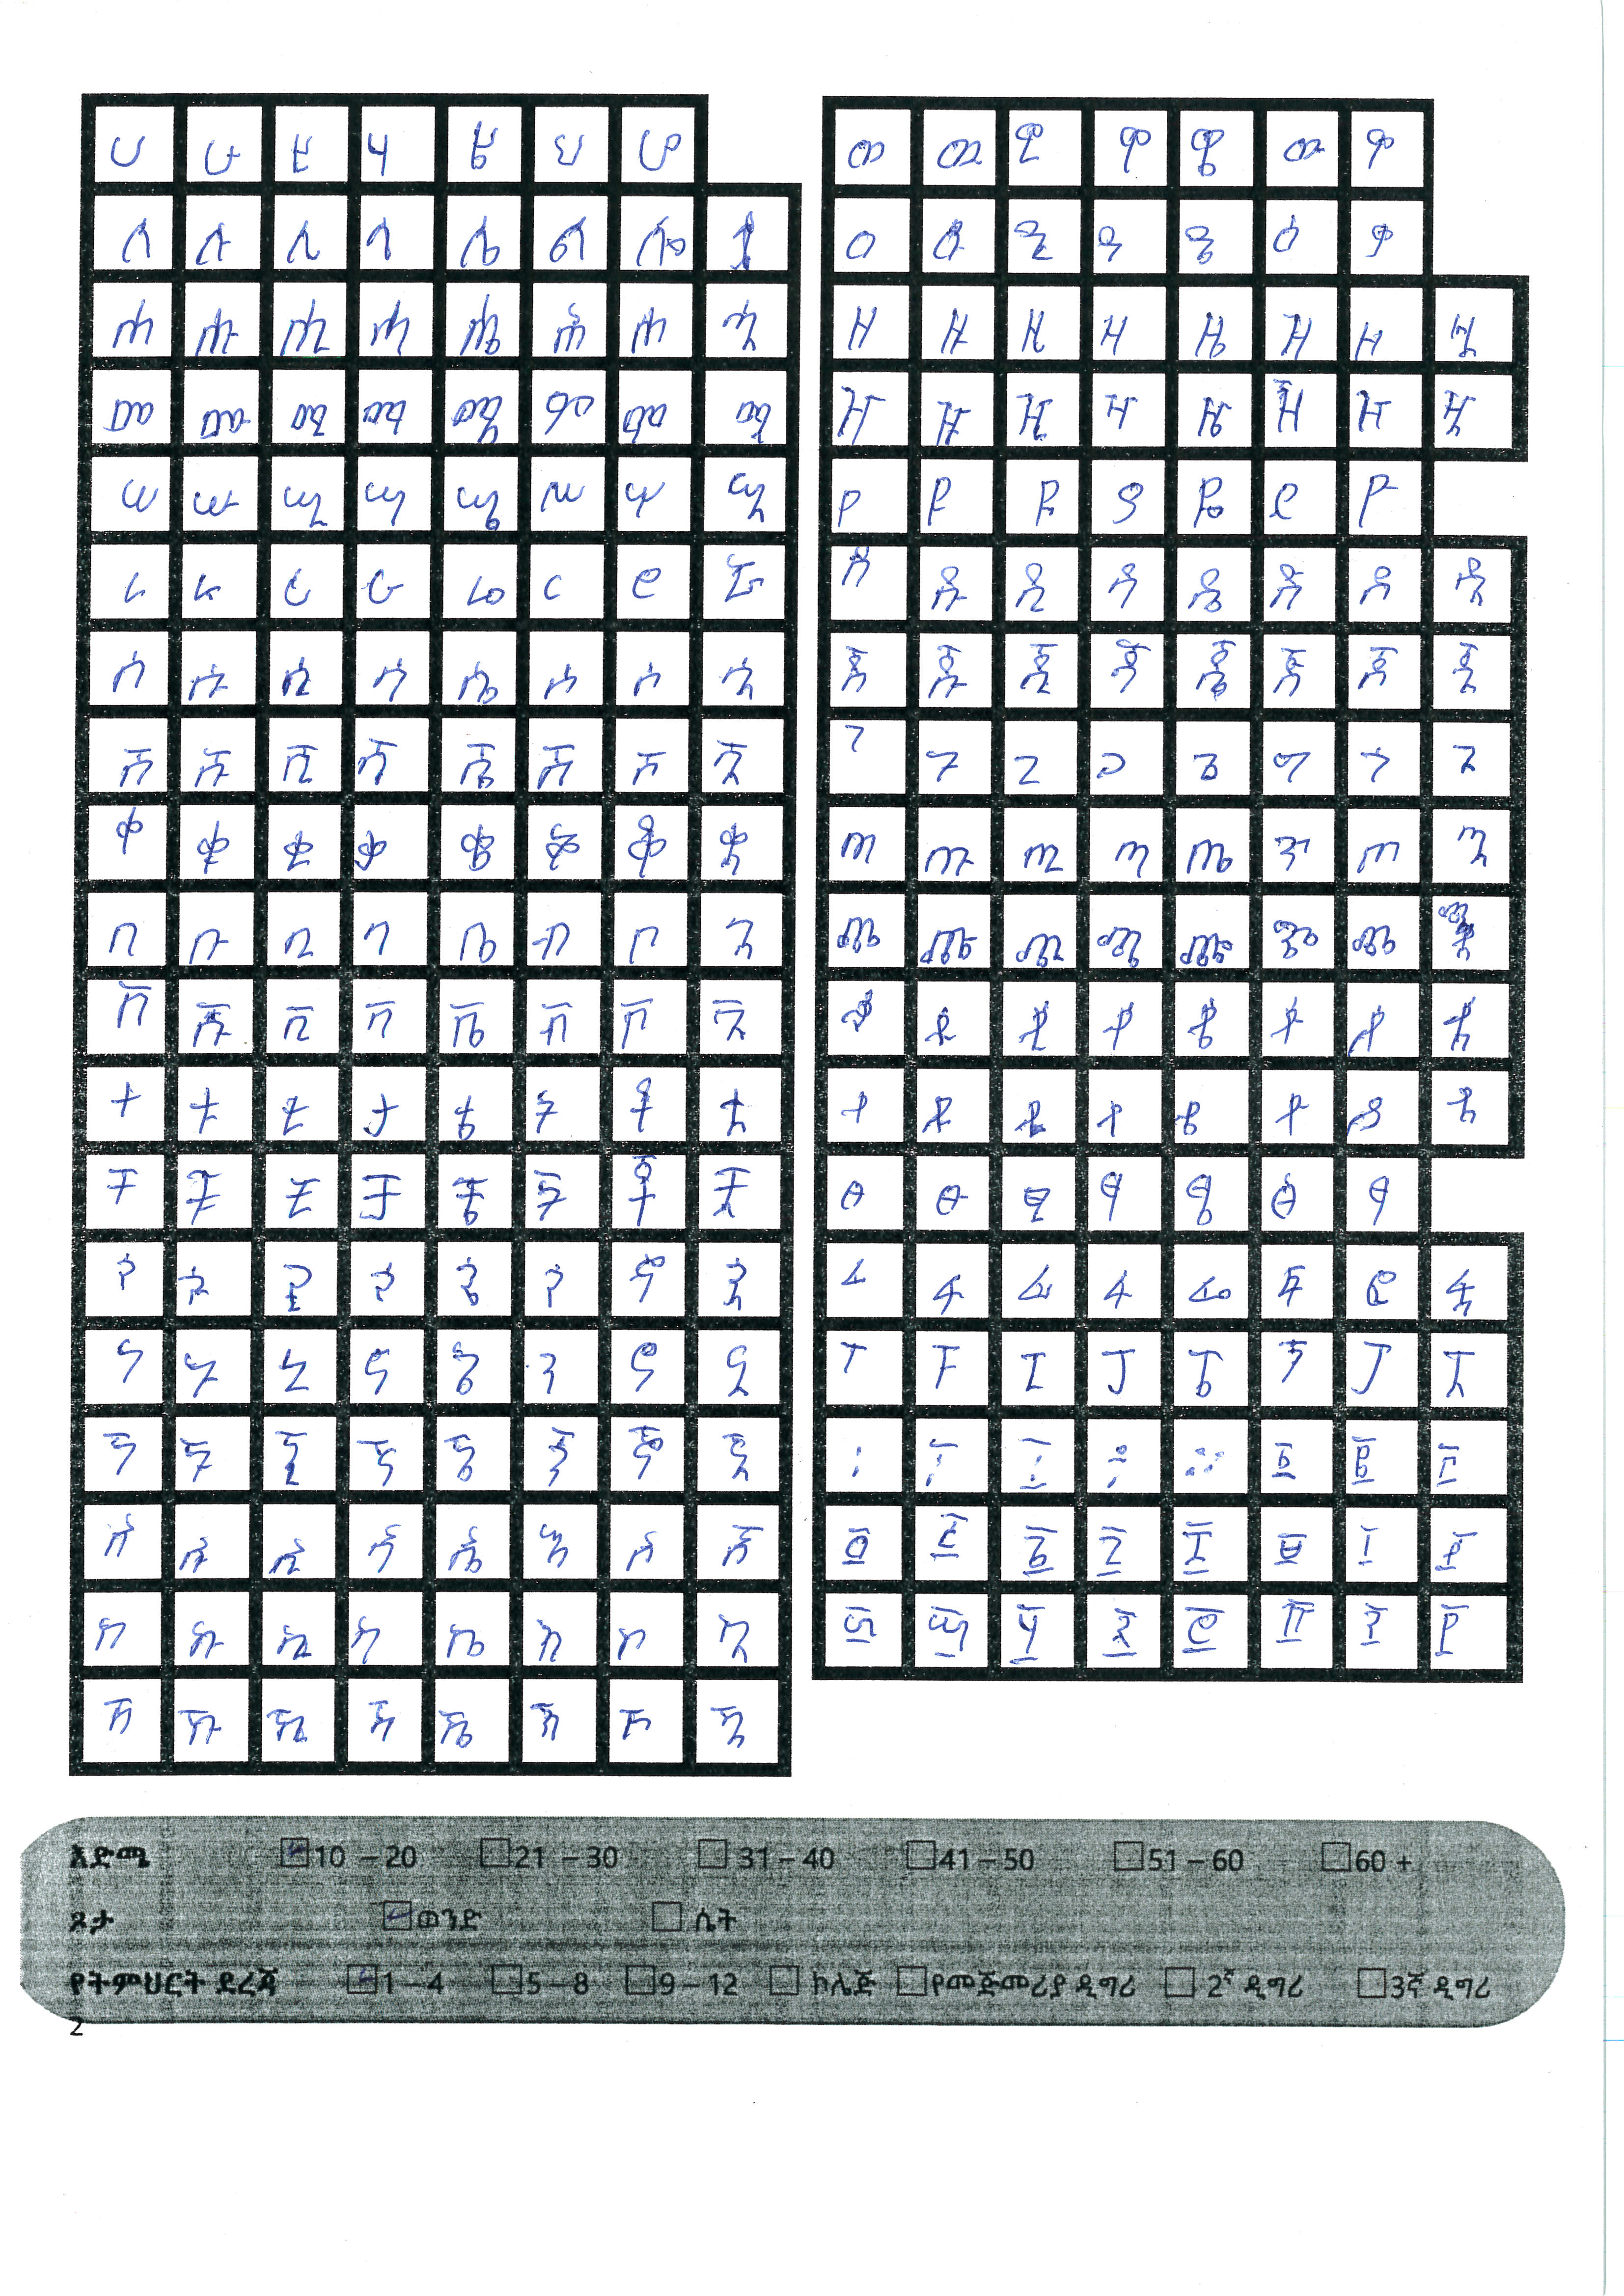 ሀ ሁ ሂ ሃ ሄ ህ ሆ
ለ ሉ ሊ ላ ሌ ል ሎ ሏ
ሐ ሑ ሒ ሓ ሔ ሕ ሖ ሗ
መ ሙ ሚ ማ ሜ ም ሞ ሟ
ሠ ሡ ሢ ሣ ሤ ሥ ሦ ሧ
ረ ሩ ሪ ራ ሬ ር ሮ ሯ
ሰ ሱ ሲ ሳ ሴ ስ ሶ ሷ
ሸ ሹ ሺ ሻ ሼ ሽ ሾ ሿ
ቀ ቁ ቂ ቃ ቄ ቅ ቆ ቋ
በ ቡ ቢ ባ ቤ ብ ቦ ቧ
ቨ ቩ ቪ ቫ ቬ ቭ ቮ ቯ
ተ ቱ ቲ ታ ቴ ት ቶ ቷ
ቸ ቹ ቺ ቻ ቼ ች ቾ ቿ
ኀ ኁ ኂ ኃ ኄ ኅ ኆ ኋ
ነ ኑ ኒ ና ኔ ን ኖ ኗ
ኘ ኙ ኚ ኛ ኜ ኝ ኞ ኟ
አ ኡ ኢ ኣ ኤ እ ኦ ኧ
ከ ኩ ኪ ካ ኬ ክ ኮ ኳ
ኸ ኹ ኺ ኻ ኼ ኽ ኾ ዃ
ወ ዉ ዊ ዋ ዌ ው ዎ
ዐ ዑ ዒ ዓ ዔ ዕ ዖ
ዘ ዙ ዚ ዛ ዜ ዝ ዞ ዟ
ዠ ዡ ዢ ዣ ዤ ዥ ዦ ዧ
የ ዩ ዪ ያ ዬ ይ ዮ
ደ ዱ ዲ ዳ ዴ ድ ዶ ዷ
ጀ ጁ ጂ ጃ ጄ ጅ ጆ ጇ
ገ ጉ ጊ ጋ ጌ ግ ጎ ጓ
ጠ ጡ ጢ ጣ ጤ ጥ ጦ ጧ
ጨ ጩ ጪ ጫ ጬ ጭ ጮ ጯ
ጰ ጱ ጲ ጳ ጴ ጵ ጶ ጷ
ጸ ጹ ጺ ጻ ጼ ጽ ጾ ጿ
ፀ ፁ ፂ ፃ ፄ ፅ ፆ
ፈ ፉ ፊ ፋ ፌ ፍ ፎ ፏ
ፐ ፑ ፒ ፓ ፔ ፕ ፖ ፗ
፡ ፣ ፤ ፥ ፨ ፩ ፪ ፫
፬ ፭ ፮ ፯ ፰ ፱ ፲ ፳
፴ ፵ ፶ ፷ ፸ ፹ ፺ ፻
እድሜ 10 – 20 21 – 30 31 – 40 41 – 50 51 – 60 60 +
ጾታ ወንድ ሴት
የትምህርት ደረጃ 1 – 4 5 – 8 9 – 12 ኮሌጅ የመጅመሪያ ዲግሪ 2ኛ ዲግሪ 3ኛ ዲግሪ
2